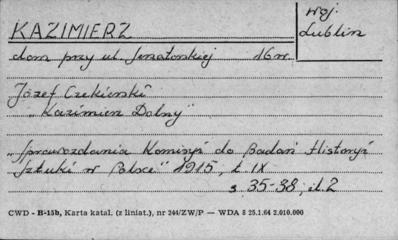 KAZIMIERZ
woj.
Lublin
dom przy ul. Senatorskiej 16 nr.
Józef Czekierski
"Kazimierz Dolny"
"Sprawozdania Komisyi do Badań Historyi
Sztuki w Polsce" 1915, t. IX
s. 35-38, il. 2
CWD - B-15b, Karta katal. (z liniat.), nr 244/ZW/P — WDA 8 25.1.64 2.010.000